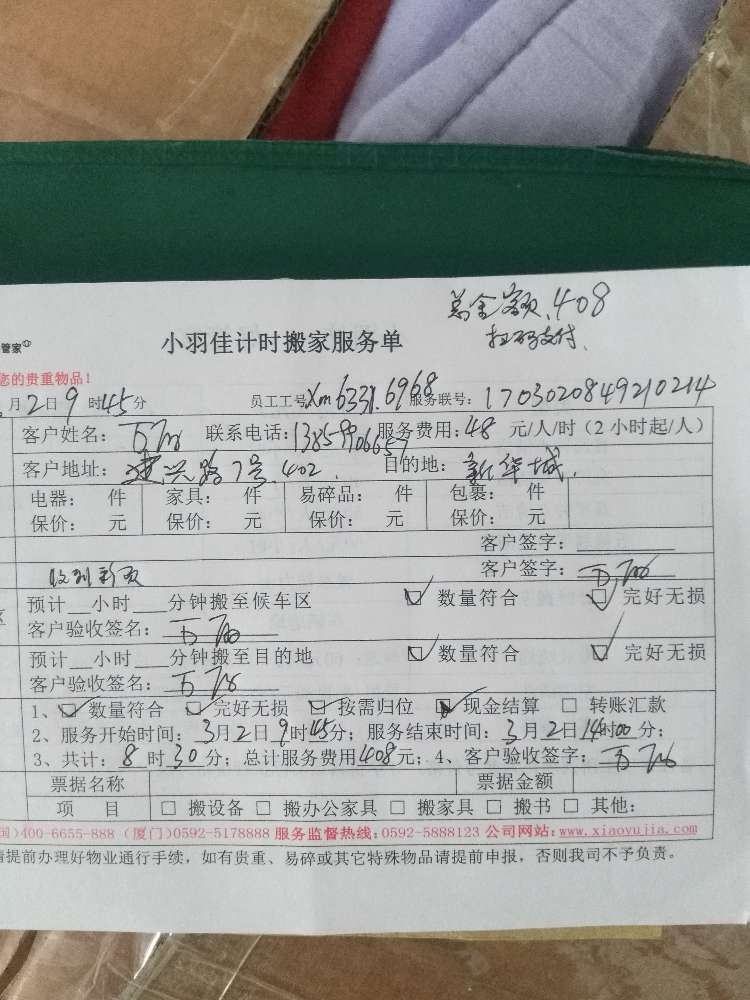 总金额408
扫码支付
管家
小羽佳计时搬家服务单
您的贵重物品！
月2日9时45分 员工工号Xm6331.6968 服务联号：1703020849210214
客户姓名： 联系电话：13859906657 服务费用：48元/人/时（2小时起/人）
客户地址：建兴路7号402 目的地：新华城
电器： 件 家具： 件 易碎品： 件 包裹： 件
保价： 元 保价： 元 保价： 元 保价： 元
客户签字：
收到新 客户签字：
预计__小时___分钟搬至候车区 ☑ 数量符合 ☑ 完好无损
区
客户验收签名：
预计__小时___分钟搬至目的地 ☑ 数量符合 ☑ 完好无损
客户验收签名：
1、☑ 数量符合 ☑ 完好无损 ☑ 按需归位 ☑ 现金结算 □ 转账汇款
2、服务开始时间：3月2日9时45分；服务结束时间：3月2日14时00分；
3、共计：8时30分；总计服务费用408元；4、客户验收签字：
票据名称 票据金额
项 目 □ 搬设备 □ 搬办公家具 □ 搬家具 □ 搬书 □ 其他：
国)400-6655-888（厦门)0592-5178888 服务监督热线：0592-5888123 公司网站：www.xiaoyujia.com
请提前办理好物业通行手续，如有贵重、易碎或其它特殊物品请提前申报，否则我司不予负责。